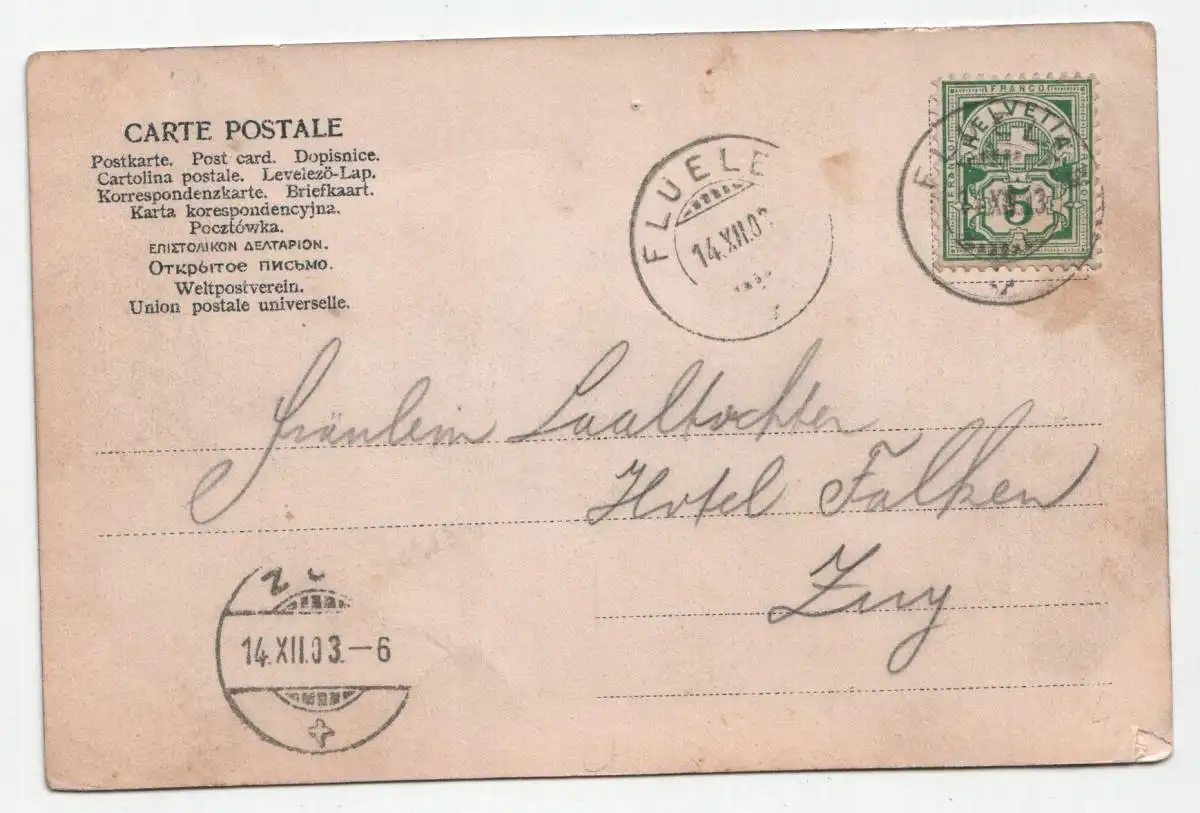 CARTE POSTALE
Postkarte. Post card. Dopisnice.
Cartolina postale. Levelező-Lap.
Korrespondenzkarte. Briefkaart.
Karta korespondencyjna.
Pocztówka.
ΕΠΙΣΤΟΛΙΚΟΝ ΔΕΛΤΑΡΙΟΝ.
Открытое письмо.
Weltpostverein.
Union postale universelle.
FLUELE
14.XII.03
FRANCO
HELVETIA
FRANCO
5
Fräulein Saaltochter
Hotel Falken
Zug
14.XII.03.–6